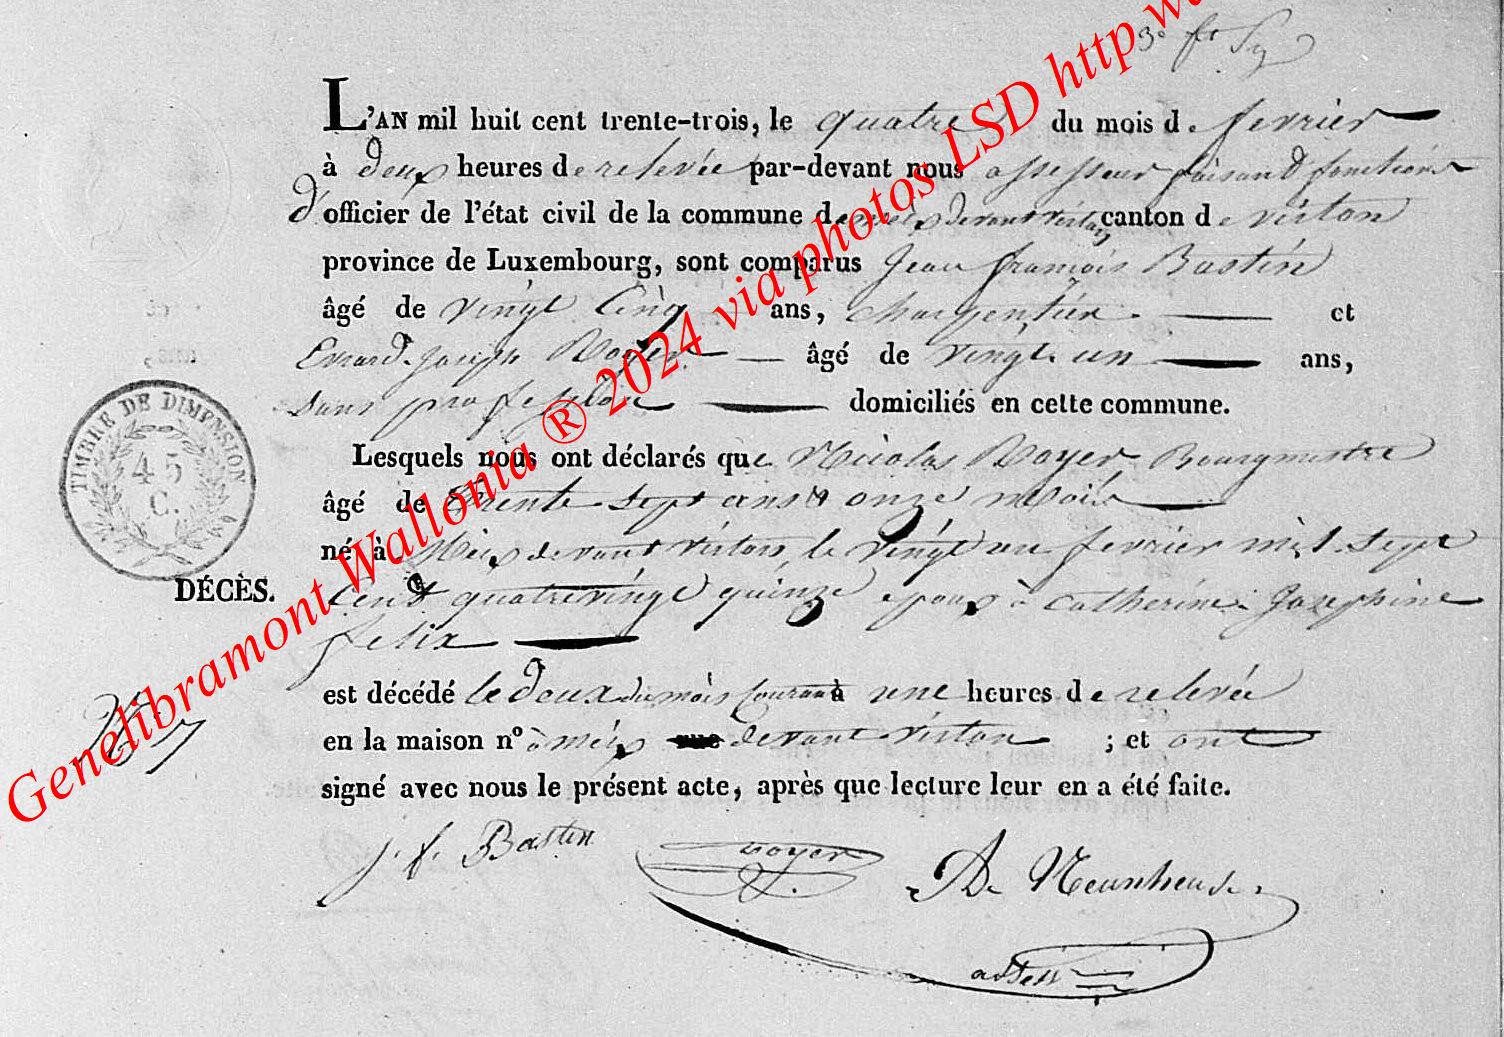 3e ft
L'AN mil huit cent trente-trois, le quatre du mois de fevrier
à deux heures de relevée par-devant nous assesseur faisant fonctions
d'officier de l'état civil de la commune de meix devant virton canton de virton
province de Luxembourg, sont comparus Jean françois Bastin
âgé de vingt cinq ans, charpentier et
Evrard Joseph Royer âgé de vingt un ans,
sans profession domiciliés en cette commune.
Lesquels nous ont déclarés que Nicolas Royer, Bourgmestre
âgé de trente sept ans & onze mois
né à Meix devant virton, le vingt un fevrier mil sept
cent quatrevingt quinze epoux à catherine Josephine
felix
est décédé le deux du mois courant à une heures de relevée
en la maison n° à meix rue devant virton ; et ont
signé avec nous le présent acte, après que lecture leur en a été faite.
TIMBRE DE DIMENSION
45
C.
DÉCÈS.
j. f. Bastin royer A. Neunheuser
ass
Genelibramont Wallonia ® 2024 via photos LSD http w